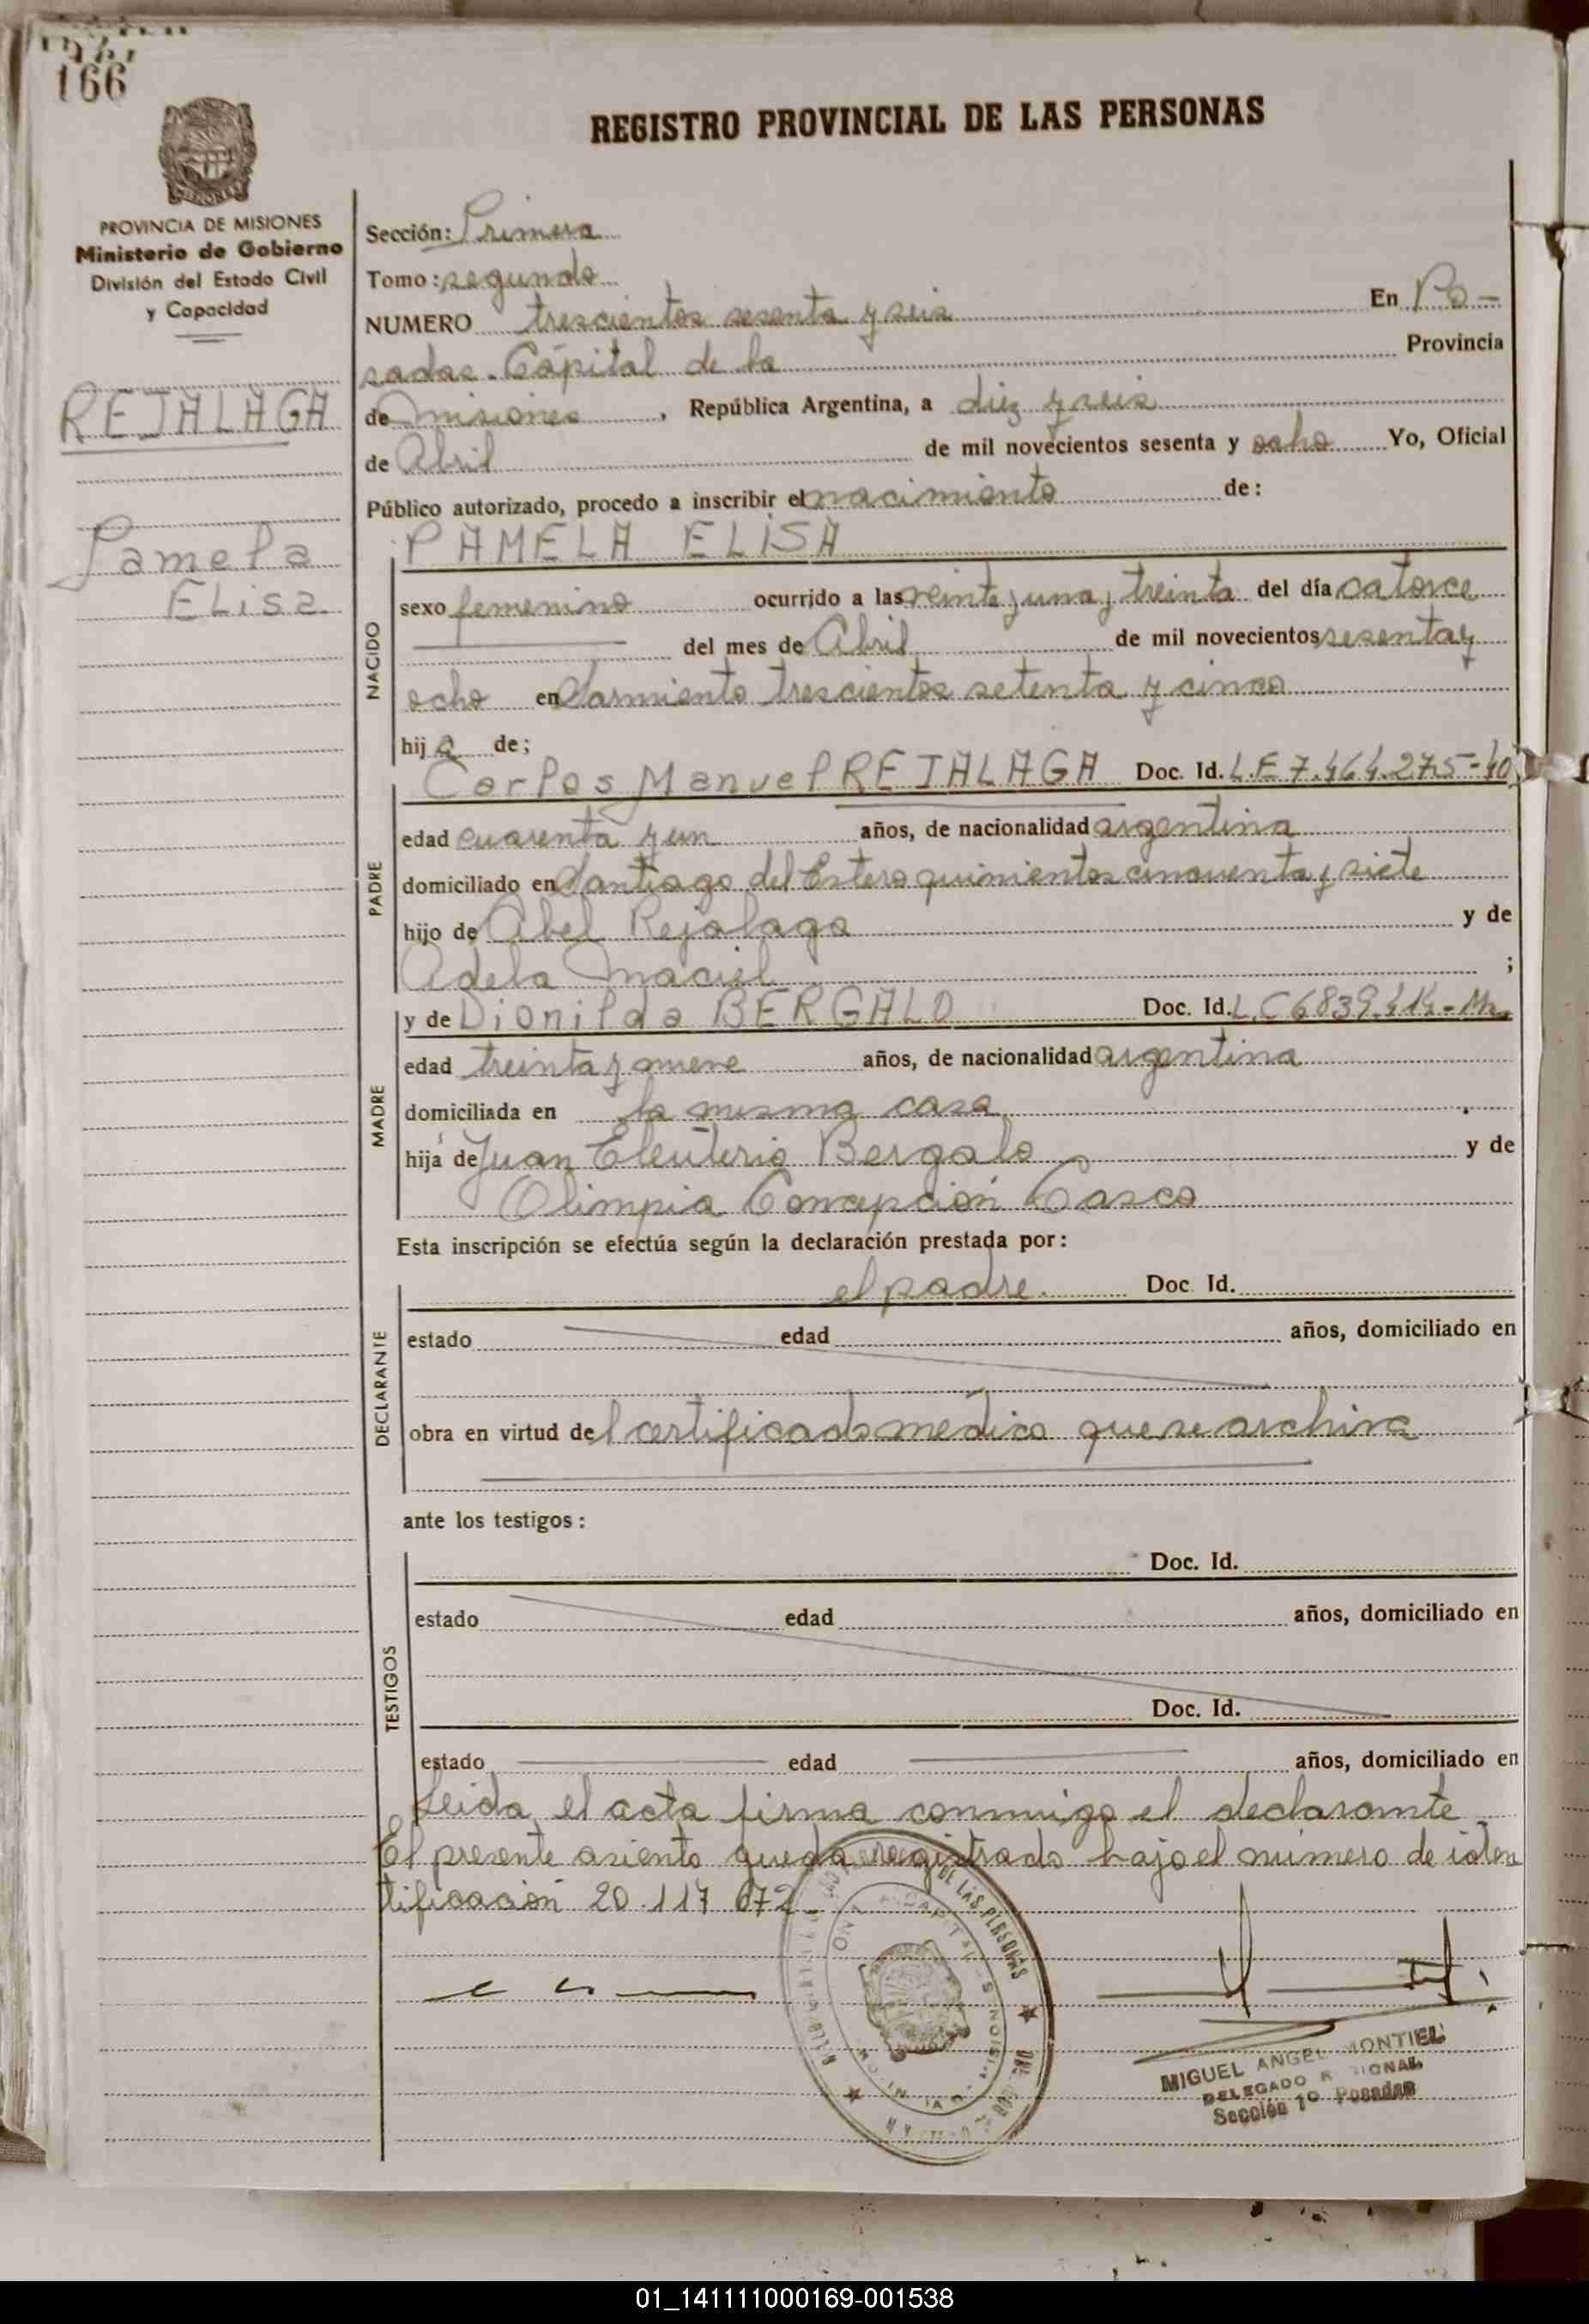 166
REGISTRO PROVINCIAL DE LAS PERSONAS
PROVINCIA DE MISIONES
Ministerio de Gobierno
División del Estado Civil
y Capacidad
REJALAGA
Pamela
ELisa
Sección: Primera
Tomo: segundo
NUMERO trescientos sesenta y seis En Po-
sadas. Cápital de la Provincia
de misiones, República Argentina, a diez y seis
de Abril de mil novecientos sesenta y ocho Yo, Oficial
Público autorizado, procedo a inscribir el nacimiento de:
PAMELA ELISA
NACIDO
sexo femenino ocurrido a las veinte y una y treinta del día catorce
del mes de Abril de mil novecientos sesenta y
ocho en Sarmiento trescientos setenta y cinco
hija de;
PADRE
Carlos Manuel REJALAGA Doc. Id. L.E 7.464.275-40
edad cuarenta y un años, de nacionalidad argentina
domiciliado en Santiago del Estero quinientos cincuenta y siete
hijo de Abel Rejalaga y de
Adela Maciel ;
MADRE
y de Dionilda BERGALO Doc. Id. L.C 6839.414-Mn.
edad treinta y nueve años, de nacionalidad argentina
domiciliada en la misma casa
hija de Juan Eleuterio Bergalo y de
Olimpia Concepción Casco
Esta inscripción se efectúa según la declaración prestada por:
DECLARANTE
el padre. Doc. Id.
estado edad años, domiciliado en
obra en virtud del certificado médico que se archiva
ante los testigos:
TESTIGOS
Doc. Id.
estado edad años, domiciliado en
Doc. Id.
estado edad años, domiciliado en
Leida el acta firma conmigo el declarante
El presente asiento queda registrado bajo el número de iden
tificación 20.117 672.
DE LAS PERSONAS
MIGUEL ANGEL MONTIEL
DELEGADO
Sección 1º Posadas
01_141111000169-001538